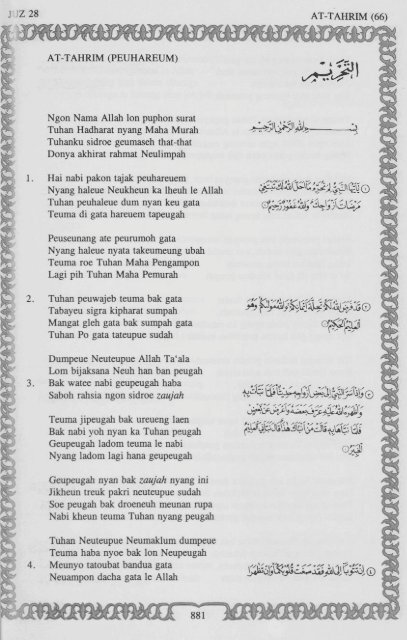 JUZ 28
AT-TAHRIM (66)
AT-TAHRIM (PEUHAREUM)
التحريم
Ngon Nama Allah lon puphon surat
Tuhan Hadharat nyang Maha Murah
Tuhanku sidroe geumaseh that-that
Donya akhirat rahmat Neulimpah
بسم الله الرحمن الرحيم
1. Hai nabi pakon tajak peuhareuem
Nyang haleue Neukheun ka lheuh le Allah
Tuhan peuhaleue dum nyan keu gata
Teuma di gata hareuem tapeugah
يَا أَيُّهَا النَّبِيُّ لِمَ تُحَرِّمُ مَا أَحَلَّ اللَّهُ لَكَ تَبْتَغِي
مَرْضَاتَ أَزْوَاجِكَ وَاللَّهُ غَفُورٌ رَحِيمٌ
Peuseunang ate peurumoh gata
Nyang haleue nyata takeumeung ubah
Teuma roe Tuhan Maha Pengampon
Lagi pih Tuhan Maha Pemurah
2. Tuhan peuwajeb teuma bak gata
Tabayeu sigra kipharat sumpah
Mangat gleh gata bak sumpah gata
Tuhan Po gata tateupue sudah
قَدْ فَرَضَ اللَّهُ لَكُمْ تَحِلَّةَ أَيْمَانِكُمْ وَاللَّهُ مَوْلَاكُمْ وَهُوَ
الْعَلِيمُ الْحَكِيمُ
Dumpeue Neuteupue Allah Ta'ala
Lom bijaksana Neuh han ban peugah
3. Bak watee nabi geupeugah haba
Saboh rahsia ngon sidroe zaujah
وَإِذْ أَسَرَّ النَّبِيُّ إِلَى بَعْضِ أَزْوَاجِهِ حَدِيثًا فَلَمَّا نَبَّأَتْ بِهِ
وَأَظْهَرَهُ اللَّهُ عَلَيْهِ عَرَّفَ بَعْضَهُ وَأَعْرَضَ عَنْ بَعْضٍ
فَلَمَّا نَبَّأَهَا بِهِ قَالَتْ مَنْ أَنْبَأَكَ هَذَا قَالَ نَبَّأَنِيَ الْعَلِيمُ
الْخَبِيرُ
Teuma jipeugah bak ureueng laen
Bak nabi yoh nyan ka Tuhan peugah
Geupeugah ladom teuma le nabi
Nyang ladom lagi hana geupeugah
Geupeugah nyan bak zaujah nyang ini
Jikheun treuk pakri neuteupue sudah
Soe peugah bak droeneuh meunan rupa
Nabi kheun teuma Tuhan nyang peugah
Tuhan Neuteupue Neumaklum dumpeue
Teuma haba nyoe bak lon Neupeugah
4. Meunyo tatoubat bandua gata
Neuampon dacha gata le Allah
إِنْ تَتُوبَا إِلَى اللَّهِ فَقَدْ صَغَتْ قُلُوبُكُمَا وَإِنْ تَظَاهَرَا
881